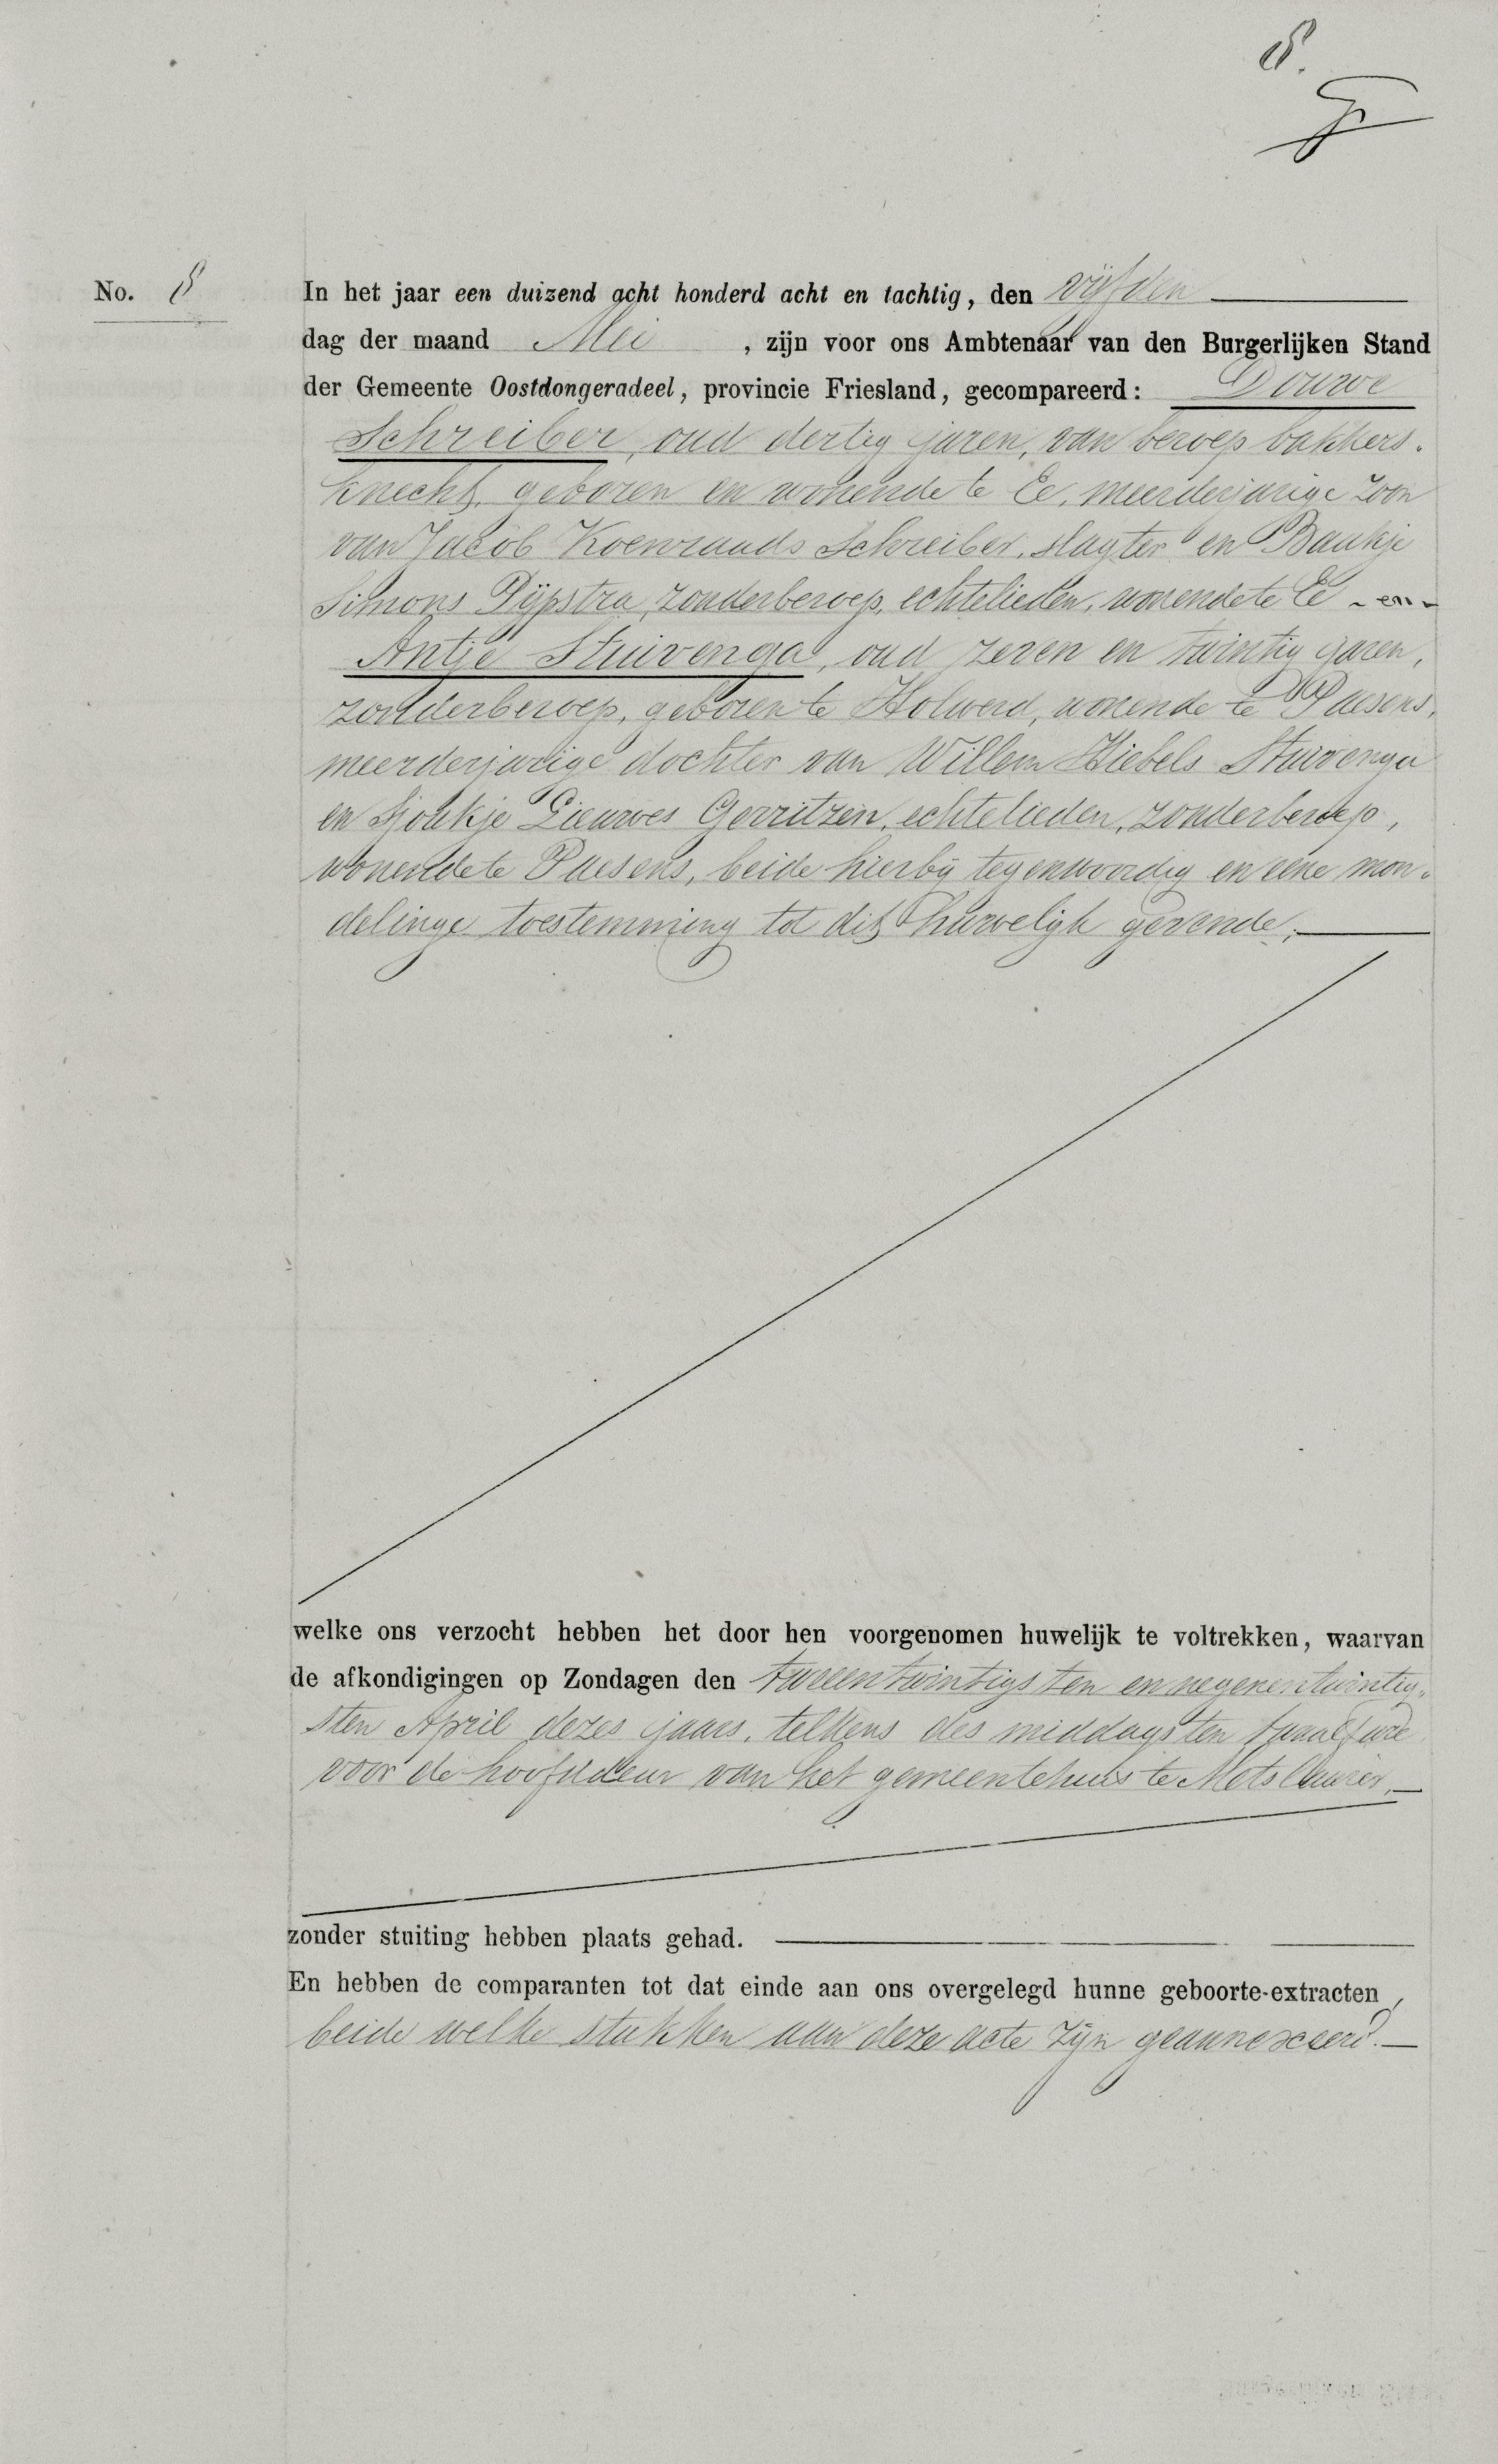 8.
No. 8
In het jaar een duizend acht honderd acht en tachtig, den vijfden
dag der maand Mei , zijn voor ons Ambtenaar van den Burgerlijken Stand
der Gemeente Oostdongeradeel, provincie Friesland, gecompareerd: Douwe
Schreiber, oud dertig jaren, van beroep bakkers-
knecht, geboren en wonende te Ee, meerderjarige zoon
van Jacob Koenraads Schreiber, slagter en Baukje
Simons Pijpstra, zonder beroep, echtelieden, wonende te Ee - en -
Antje Stuivenga, oud zeven en twintig jaren,
zonder beroep, geboren te Holwerd, wonende te Paesens,
meerderjarige dochter van Willem Hiebels Stuivenga
en Sjoukje Lieuwes Gerritzen, echtelieden, zonder beroep,
wonende te Paesens, beide hierbij tegenwoordig en eene mon-
delinge toestemming tot dit huwelijk gevende,
welke ons verzocht hebben het door hen voorgenomen huwelijk te voltrekken, waarvan
de afkondigingen op Zondagen den tweeentwintigsten en negenentwintig-
sten April dezes jaars, telkens des middags ten twaalf ure
voor de hoofddeur van het gemeentehuis te Metslawier,
zonder stuiting hebben plaats gehad.
En hebben de comparanten tot dat einde aan ons overgelegd hunne geboorte-extracten,
beide welke stukken aan deze acte zijn geannexeerd.